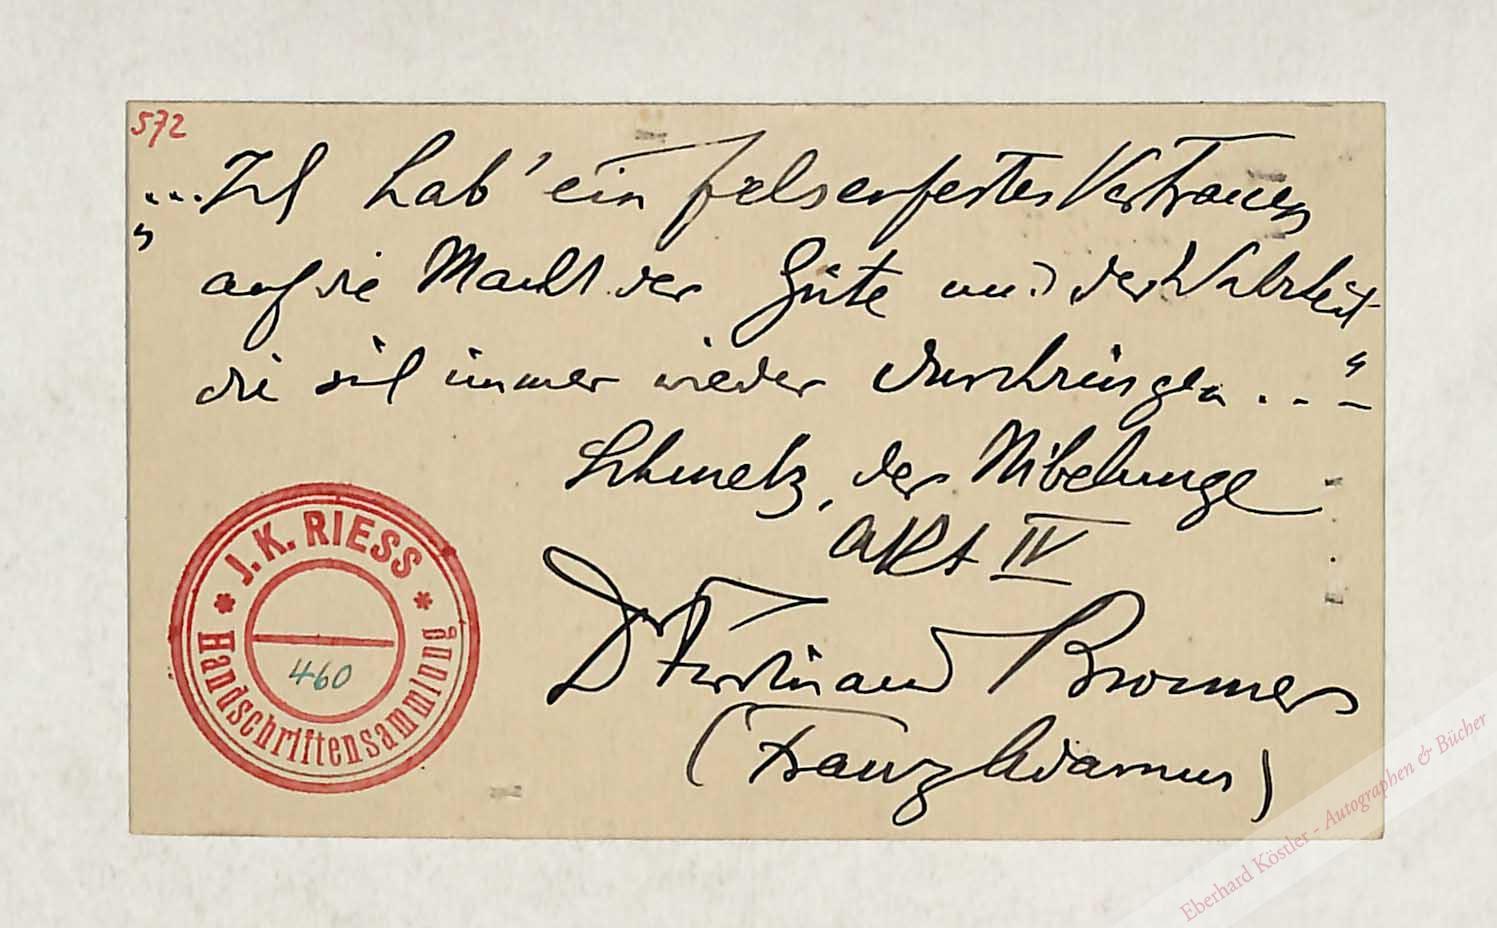 572
"...Ich hab' ein felsenfestes Vertrauen
auf die Macht der Güte und der Wahrheit
die sich immer wieder durchringen..."
Schmelz, der Nibelunge
Akt IV
Dr Ferdinand Bronner
(Franz Adamus)
J.K. RIESS
Handschriftensammlung
460
Eberhard Köstler - Autographen & Bücher